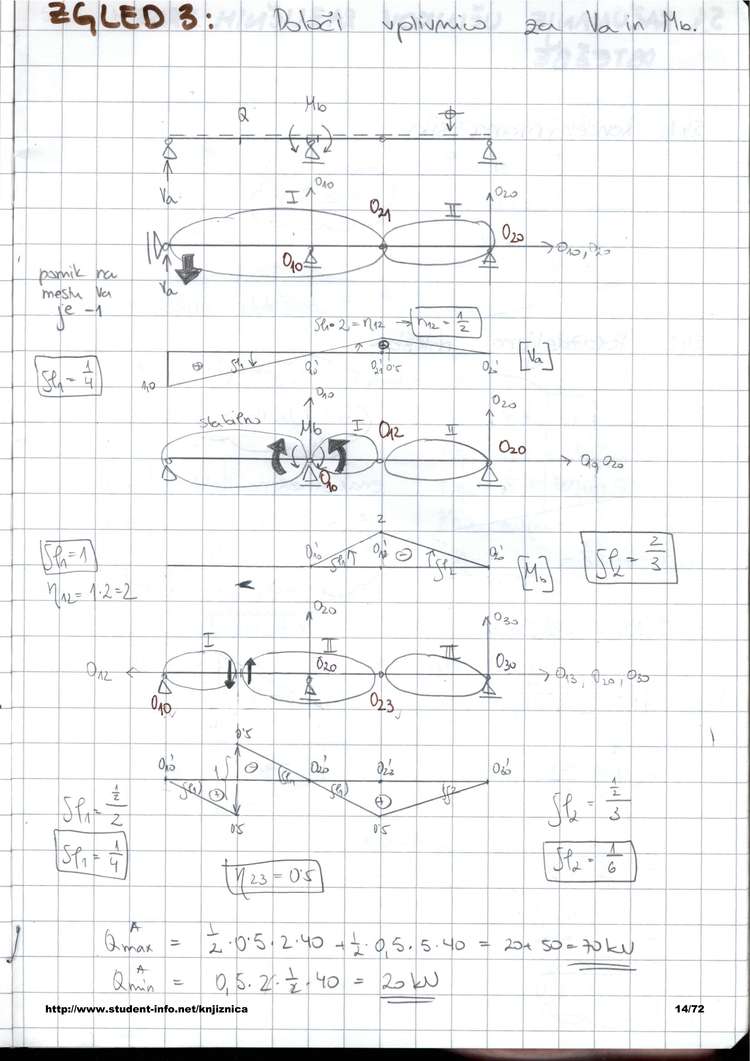 ZGLED 3: Določi vplivnico za Va in Mb.
Q Mb
Va
I O10 O21 II O20
O10 O20 O10, O20
pomik na
mestu Va
je -1
Va
φ1·2 = η12 → η12 = 1/2
⊕ φ1 ⊕ [Va]
φ1 = 1/4
1,0 O10' O21' 0'5 O20'
O10 O20
stabilno Mb I O12 II O20
O10 O10, O20
2
φ1 = 1 O10' φ1 O12' ⊖ φ2 O20' [Mb] φ2 = 2/3
η12 = 1·2 = 2
O20 O30
I II III
O12 O20 O30 O13, O20, O30
O10 O23
0'5
O10' φ1 ⊕ 1 ⊖ φ1 O20' φ1 O23' ⊕ φ2 O30'
0'5 0'5
φ1 = 1/2 / 2 φ2 = 1/2 / 3
φ1 = 1/4 φ2 = 1/6
η23 = 0'5
Qmax A = 1/2 · 0'5 · 2 · 40 + 1/2 · 0,5 · 5 · 40 = 20 + 50 = 70 kN
Qmin A = 0,5 · 2 · 1/2 · 40 = 20 kN
http://www.student-info.net/knjiznica 14/72